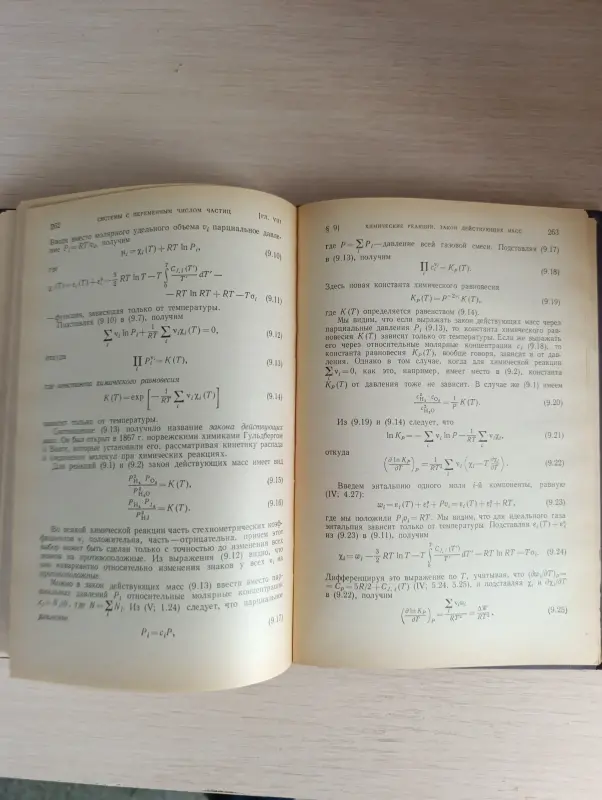 262 СИСТЕМЫ С ПЕРЕМЕННЫМ ЧИСЛОМ ЧАСТИЦ [ГЛ. VII
Введя вместо молярного удельного объема v_i парциальное давле-
ние P_i = RT/v_i, получим
= χ_i (T) + RT ln P_i, (9.10)
где
— RT ln RT + RT — Tσ_i (9.11)
—функция, зависящая только от температуры.
Подставляя (9.10) в (9.7), получим
∑ ν_i ln P_i + 1/RT ∑ ν_i χ_i (T) = 0, (9.12)
откуда
∏ P_i^{ν_i} = K (T), (9.13)
где константа химического равновесия
K (T) = exp [ — 1/RT ∑ ν_i χ_i (T) ] (9.14)
зависит только от температуры.
Соотношение (9.13) получило название закона действующих
масс. Он был открыт в 1867 г. норвежскими химиками Гульдбергом
и Вааге, которые установили его, рассматривая кинетику распада
и соединения молекул при химических реакциях.
Для реакций (9.1) и (9.2) закон действующих масс имеет вид
= K (T), (9.15)
= K (T). (9.16)
Во всякой химической реакции часть стехиометрических коэф-
фициентов ν_i положительна, часть—отрицательна, причем этот
выбор может быть сделан только с точностью до изменения всех
знаков на противоположные. Из выражения (9.12) видно, что
оно инвариантно относительно изменения знаков у всех ν_i на
противоположные.
Можно в закон действующих масс (9.13) ввести вместо пар-
циальных давлений P_i относительные молярные концентрации
c_i = N_i/N, где N = ∑ N_i. Из (V; 1.24) следует, что парциальные
давления
P_i = c_i P, (9.17)
§ 9] ХИМИЧЕСКИЕ РЕАКЦИИ. ЗАКОН ДЕЙСТВУЮЩИХ МАСС 263
где P = ∑ P_i—давление всей газовой смеси. Подставляя (9.17)
в (9.13), получим
∏ c_i^{ν_i} = K_P (T). (9.18)
Здесь новая константа химического равновесия
K_P (T) = P^{-∑ν_i} K (T), (9.19)
где K (T) определяется равенством (9.14).
Мы видим, что если выражать закон действующих масс через
парциальные давления P_i (9.13), то константа химического рав-
новесия K (T) зависит только от температуры. Если же выражать
его через относительные молярные концентрации c_i (9.18), то
константа равновесия K_P(T), вообще говоря, зависит и от дав-
ления. Однако в том случае, когда для химической реакции
∑ν_i = 0, как это, например, имеет место в (9.2), константа
K_P (T) от давления тоже не зависит. В случае же (9.1) имеем
= 1/P K (T). (9.20)
Из (9.19) и (9.14) следует, что
ln K_P = — ∑ ν_i ln P — 1/RT ∑ ν_i χ_i, (9.21)
откуда
(∂ ln K_P/∂T)_P = 1/RT² ∑ ν_i (χ_i — T ∂χ_i/∂T). (9.22)
Введем энтальпию одного моля i-й компоненты, равную
(IV; 4.27):
w_i = ε_i (T) + + Pv_i = ε_i (T) + + RT, (9.23)
где мы положили P_i v_i = RT. Мы видим, что для идеального газа
энтальпия зависит только от температуры. Подставляя
из (9.23) в (9.11), получим
χ_i = w_i — RT ln T — T dT′ — RT ln RT — Tσ_i. (9.24)
Дифференцируя это выражение по T, учитывая, что (∂w_i/∂T)_P =
= C_P = 5R/2 + C_{J, i} (T) (IV; 5.24, 5.25), и подставляя χ_i и ∂χ_i/∂T
в (9.22), получим
(∂ ln K_P/∂T)_P = ∑ ν_i w_i/RT² = (9.25)